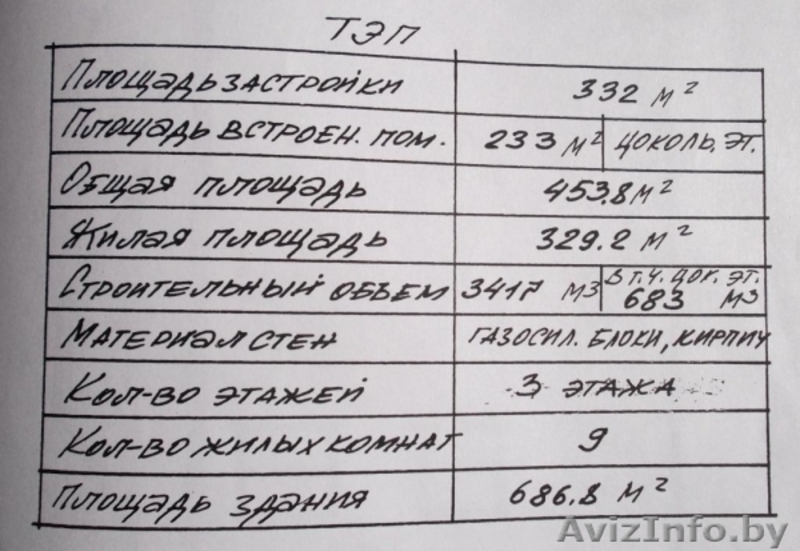 ТЭП
ПЛОЩАДЬ ЗАСТРОЙКИ 332 М²
ПЛОЩАДЬ ВСТРОЕН. ПОМ. 233 М² ЦОКОЛЬ. ЭТ.
ОБЩАЯ ПЛОЩАДЬ 453.8 М²
ЖИЛАЯ ПЛОЩАДЬ 329.2 М²
СТРОИТЕЛЬНЫЙ ОБЪЕМ 3417 М3 В Т.Ч. ЦОК. ЭТ.
683 М3
МАТЕРИАЛ СТЕН ГАЗОСИЛ. БЛОКИ, КИРПИЧ
КОЛ-ВО ЭТАЖЕЙ 3 ЭТАЖА
КОЛ-ВО ЖИЛЫХ КОМНАТ 9
ПЛОЩАДЬ ЗДАНИЯ 686.8 М²
AvizInfo.by